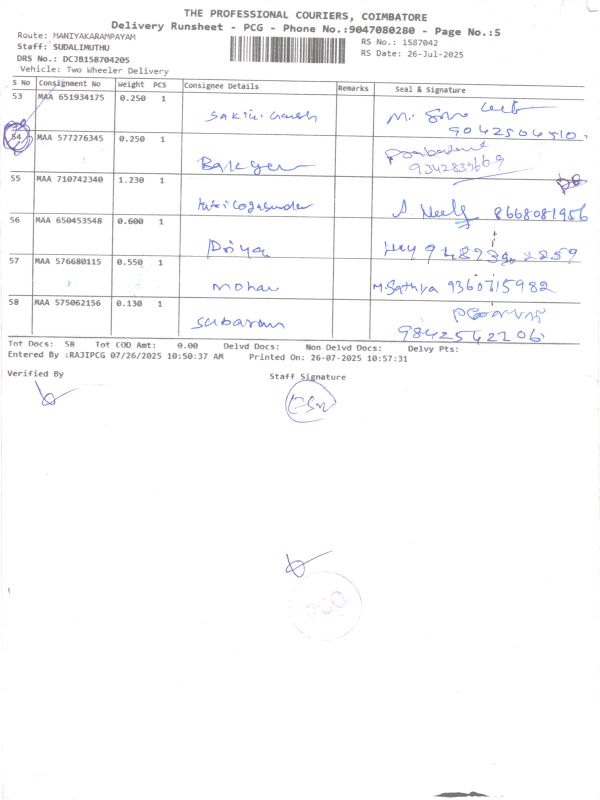 THE PROFESSIONAL COURIERS, COIMBATORE
Delivery Runsheet - PCG - Phone No.:9047080280 - Page No.:5
Route: MANIYAKARAMPAYAM
RS No.: 1587042
Staff: SUDALIMUTHU
RS Date: 26-Jul-2025
DRS No.: DCJB158704205
Vehicle: Two Wheeler Delivery
S No Consignment No Weight PCS Consignee Details Remarks Seal & Signature
53 MAA 651934175 0.250 1
54 MAA 577276345 0.250 1
55 MAA 710742340 1.230 1
A. 8668081956
56 MAA 650453548 0.600 1
Priya
57 MAA 576680115 0.550 1
mohan M.Sathya 9360715982
58 MAA 575062156 0.130 1
Subaram
9842542206
Tot Docs: 58 Tot COD Amt: 0.00 Delvd Docs: Non Delvd Docs: Delvy Pts:
Entered By :RAJIPCG 07/26/2025 10:50:37 AM Printed On: 26-07-2025 10:57:31
Verified By Staff Signature
PCO